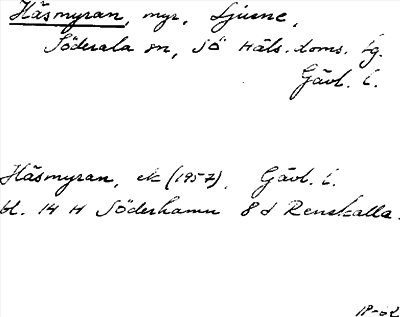 Häsmyran, myr, Ljusne,
Söderala sn, SÖ Häls. doms. tg.
Gävl. l.
Häsmyran, ek (1957), Gävl. l.
bl. 14 H Söderhamn 8 d Renskalla.